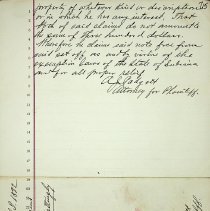 property of whatever kind or description
or in which he has any interest. That
both of said claims do not amount to
the sum of three hundred dollars.
Wherefore he claims said note free from
said set off, as and by virtue of the
exemption laws of the State of Indiana
and for all proper relief.
Attorney for Plaintiff.
1892